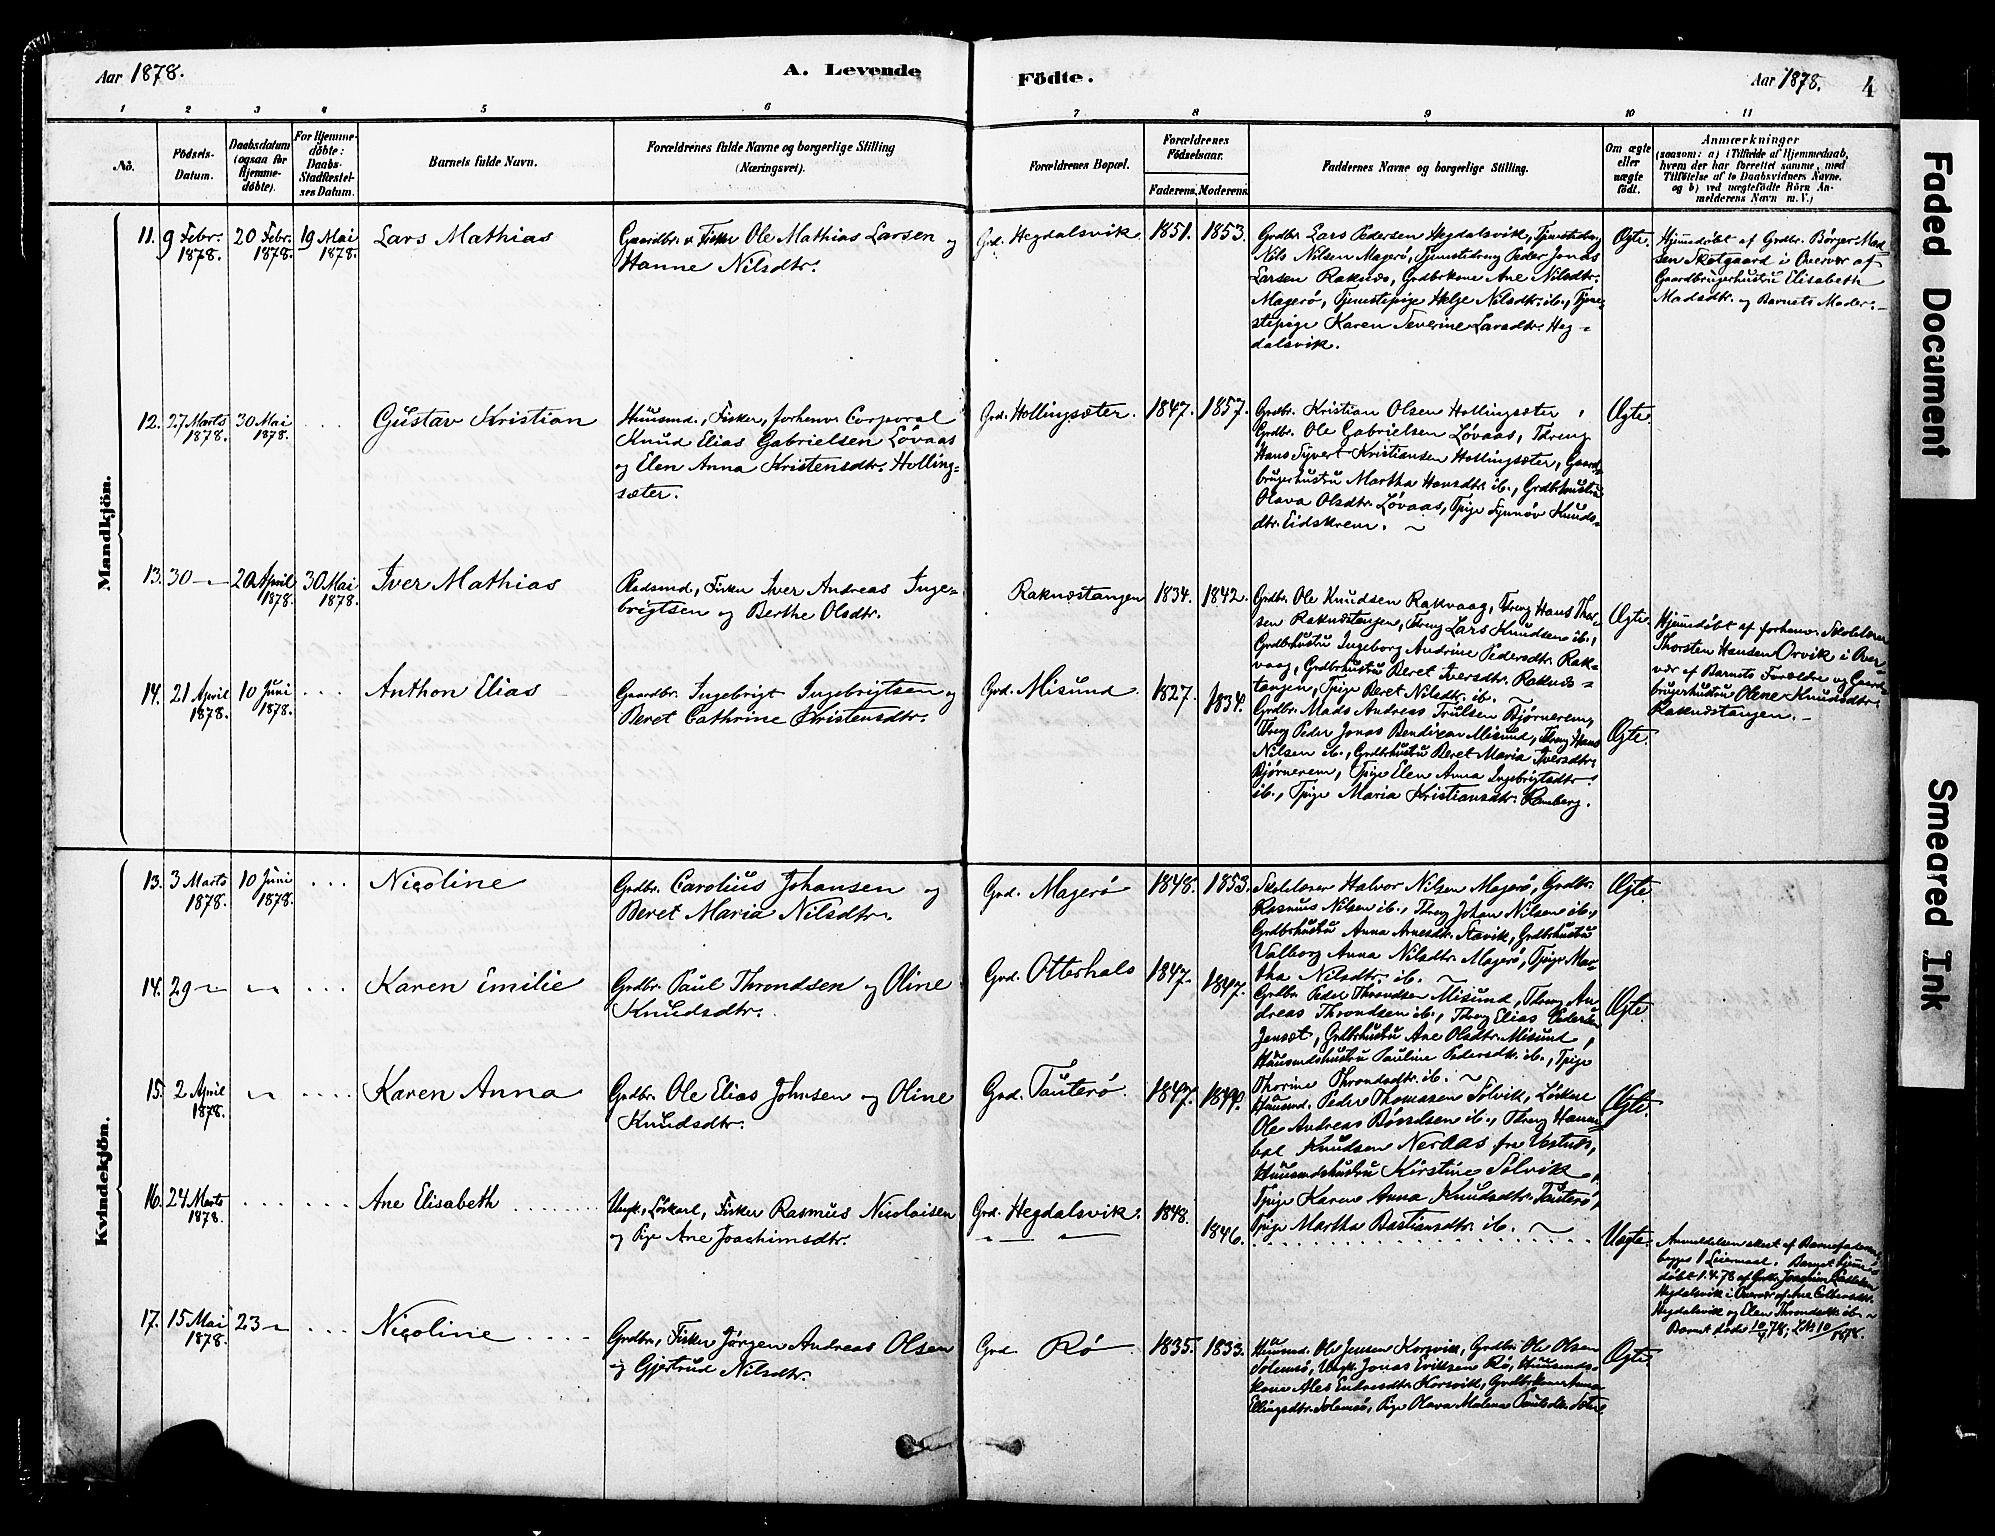 Aar 1878.
A. Levende
Födte.
Aar 1878.
4
1 2 3 4 5 6 7 8 9 10 11
No.
Födsels-
Datum.
Daabsdatum
(ogsaa for
Hjemme-
döbte).
For Hjemme-
döbte:
Daabs-
Stadfæstel-
ses Datum.
Barnets fulde Navn.
Forældrenes fulde Navne og borgerlige Stilling
(Næringsvei).
Forældrenes Bopæl.
Forældrenes
Födselsaar.
Faderens. Moderens.
Faddernes Navne og borgerlige Stilling.
Om ægte
eller
uægte
födt.
Anmærkninger
(saasom: a) i Tilfælde af Hjemmedaab,
hvem der har forrettet samme, med
Tilföielse af to Daabsvidners Navne,
og b) ved uægtefödte Börn An-
melderens Navn m. V.)
Mandkjön.
11. 9 Febr.
1878.
20 Febr.
1878.
19 Mai
1878.
Lars Mathias
Gaardbr. & Fisker Ole Mathias Larsen og
Hanne Nilsdtr.
Grd. Hegdalsvik
1851. 1853.
Grdbr. Lars Pedersen Hegdalsvik, Tjenestedreng
Nils Nilsen Magerø, Tjenestedreng Peder Jonas
Larsen Raknæs, Grdbrkone Ane Nilsdtr.
Magerø, Tjenestepige Helje Nilsdtr. ib., Tjene-
stepige Karen Severine Larsdtr. Heg-
dalsvik.
Ægte.
Hjemmedøbt af Grdbr. Børger Mad-
sen Skotgaard i Overvær af
Gaardbrugerhustru Elisabeth
Madsdtr. og Barnets Moder.
12. 27 Marts
1878.
30 Mai
1878.
Gustav Kristian
Huusmd., Fisker, forhenv. Corporal
Knud Elias Gabrielsen Løvaas
og Elen Anna Kristensdtr. Holling-
sæter.
Grd. Hollingsæter.
1847. 1857.
Grdbr. Kristian Olsen Hollingsæter,
Grdbr. Ole Gabrielsen Løvaas, Tdreng
Hans Syvert Kristiansen Hollingsæter, Gaard-
brugerhustru Martha Hansdtr. ib., Grdbrhustru
Olava Olsdtr. Løvaas, Tpige Synnøv Knuds-
dtr. Eidskrem.
Ægte.
13. 30
20 April
1878.
30 Mai
1878.
Iver Mathias
Pladsmd., Fisker Iver Andreas Inge-
brigtsen og Berthe Olsdtr.
Raknæstangen
1834. 1842.
Grdbr. Ole Knudsen Rakvaag, Tdreng Hans Thor-
sen Raknæstangen, Tdreng Lars Knudsen ib.,
Grdbrhustru Ingeborg Andrine Pedersdtr. Rak-
vaag, Grdbrhustru Beret Iversdtr. Raknæs-
tangen, Tpige Beret Nilsdtr. ib.
Ægte.
Hjemmedøbt af forhenv. Skolelærer
Thorsten Hansen Orvik i Over-
vær af Barnets Forældre og Gaard-
brugerhustru Olene Knudsdtr.
Raknæstangen.
14. 21 April
1878.
10 Juni
1878.
Anthon Elias
Gaardbr. Ingebrigt Ingebrigtsen og
Beret Cathrine Kristensdtr.
Grd. Misund
1827. 1834.
Grdbr. Mads Andreas Trulsen Bjørnerem,
Tdreng Peder Jonas Bendixen Misund, Tdreng Hans
Nilsen ib., Grdbrhustru Beret Maria Iversdtr.
Bjørnerem, Tpige Elen Anna Ingebrigtsdtr.
ib., Tpige Maria Kristiansdtr. Ramberg.
Ægte.
Kvindekjön.
13. 3 Marts
1878.
10 Juni
1878.
Nicoline
Grdbr. Carolius Johansen og
Beret Maria Nilsdtr.
Grd. Magerø
1848. 1853.
Skolelærer Halvor Nilsen Magerø, Grdbr.
Rasmus Nilsen ib., Tdreng Johan Nilsen ib.,
Grdbrhustru Anna Arnesdtr. Stavik, Grdbrhustru
Valborg Anna Nilsdtr. Magerø, Tpige Mar-
tha Nilsdtr. ib.
Ægte.
14. 29
Karen Emilie
Grdbr. Paul Throndsen og Oline
Knudsdtr.
Grd. Otterhals
1847. 1847.
Grdbr. Peder Throndsen Misund, Tdreng An-
dreas Throndsen ib., Tdreng Elias Pedersen
Jensæt, Grdbrhustru Ane Olsdtr. Misund,
Huusmdshustru Pauline Pedersdtr. ib., Tpige
Thorine Throndsdtr. ib.
Ægte.
15. 2 April
1878.
Karen Anna
Grdbr. Ole Elias Johnsen og Oline
Knudsdtr.
Grd. Tauterø.
1847. 1849.
Huusmd. Peder Thomassen Solvik, Løskarl
Ole Andreas Bårdsen ib., Tdreng Hanni-
bal Knudsen Neraas fra Vestnæs,
Huusmdshustru Kirstine Solvik,
Tpige Karen Anna Knudsdtr. Tauterø,
Tpige Martha Bastiansdtr. ib.
Ægte.
16. 24 Marts
1878.
Ane Elisabeth
Ungk., Løskarl, Fisker Rasmus Nicolaisen
og Pige Ane Joachimsdtr.
Grd. Hegdalsvik.
1848. 1846.
Uægte.
Anmeldelsen skeet af Barnefaderen,
begges 1 Leiermaal. Barnet hjemme-
døbt 1.4.78 af Grdbr. Joachim
Hegdalsvik i Overvær af Ane
Hegdalsvik og Elen Throndsdtr. ib.
Barnet døde 10/4 78;
17. 15 Mai
1878.
23
Nicoline
Grdbr., Fisker Jørgen Andreas Olsen
og Gjertrud Nilsdtr.
Grd. Rø
1835. 1833.
Huusmd. Ole Jensen Korsvik, Grdbr. Ole Olsen
Solemsø, Ungk. Jonas Eriksen Rø, Huusmds-
kone Ales Endresdtr. Korsvik, Grdbrkone Anna
Ellingsdtr. Solemsø, Pige Olava Malena Paulsdtr.
Ægte.
Faded Document
Smeared Ink